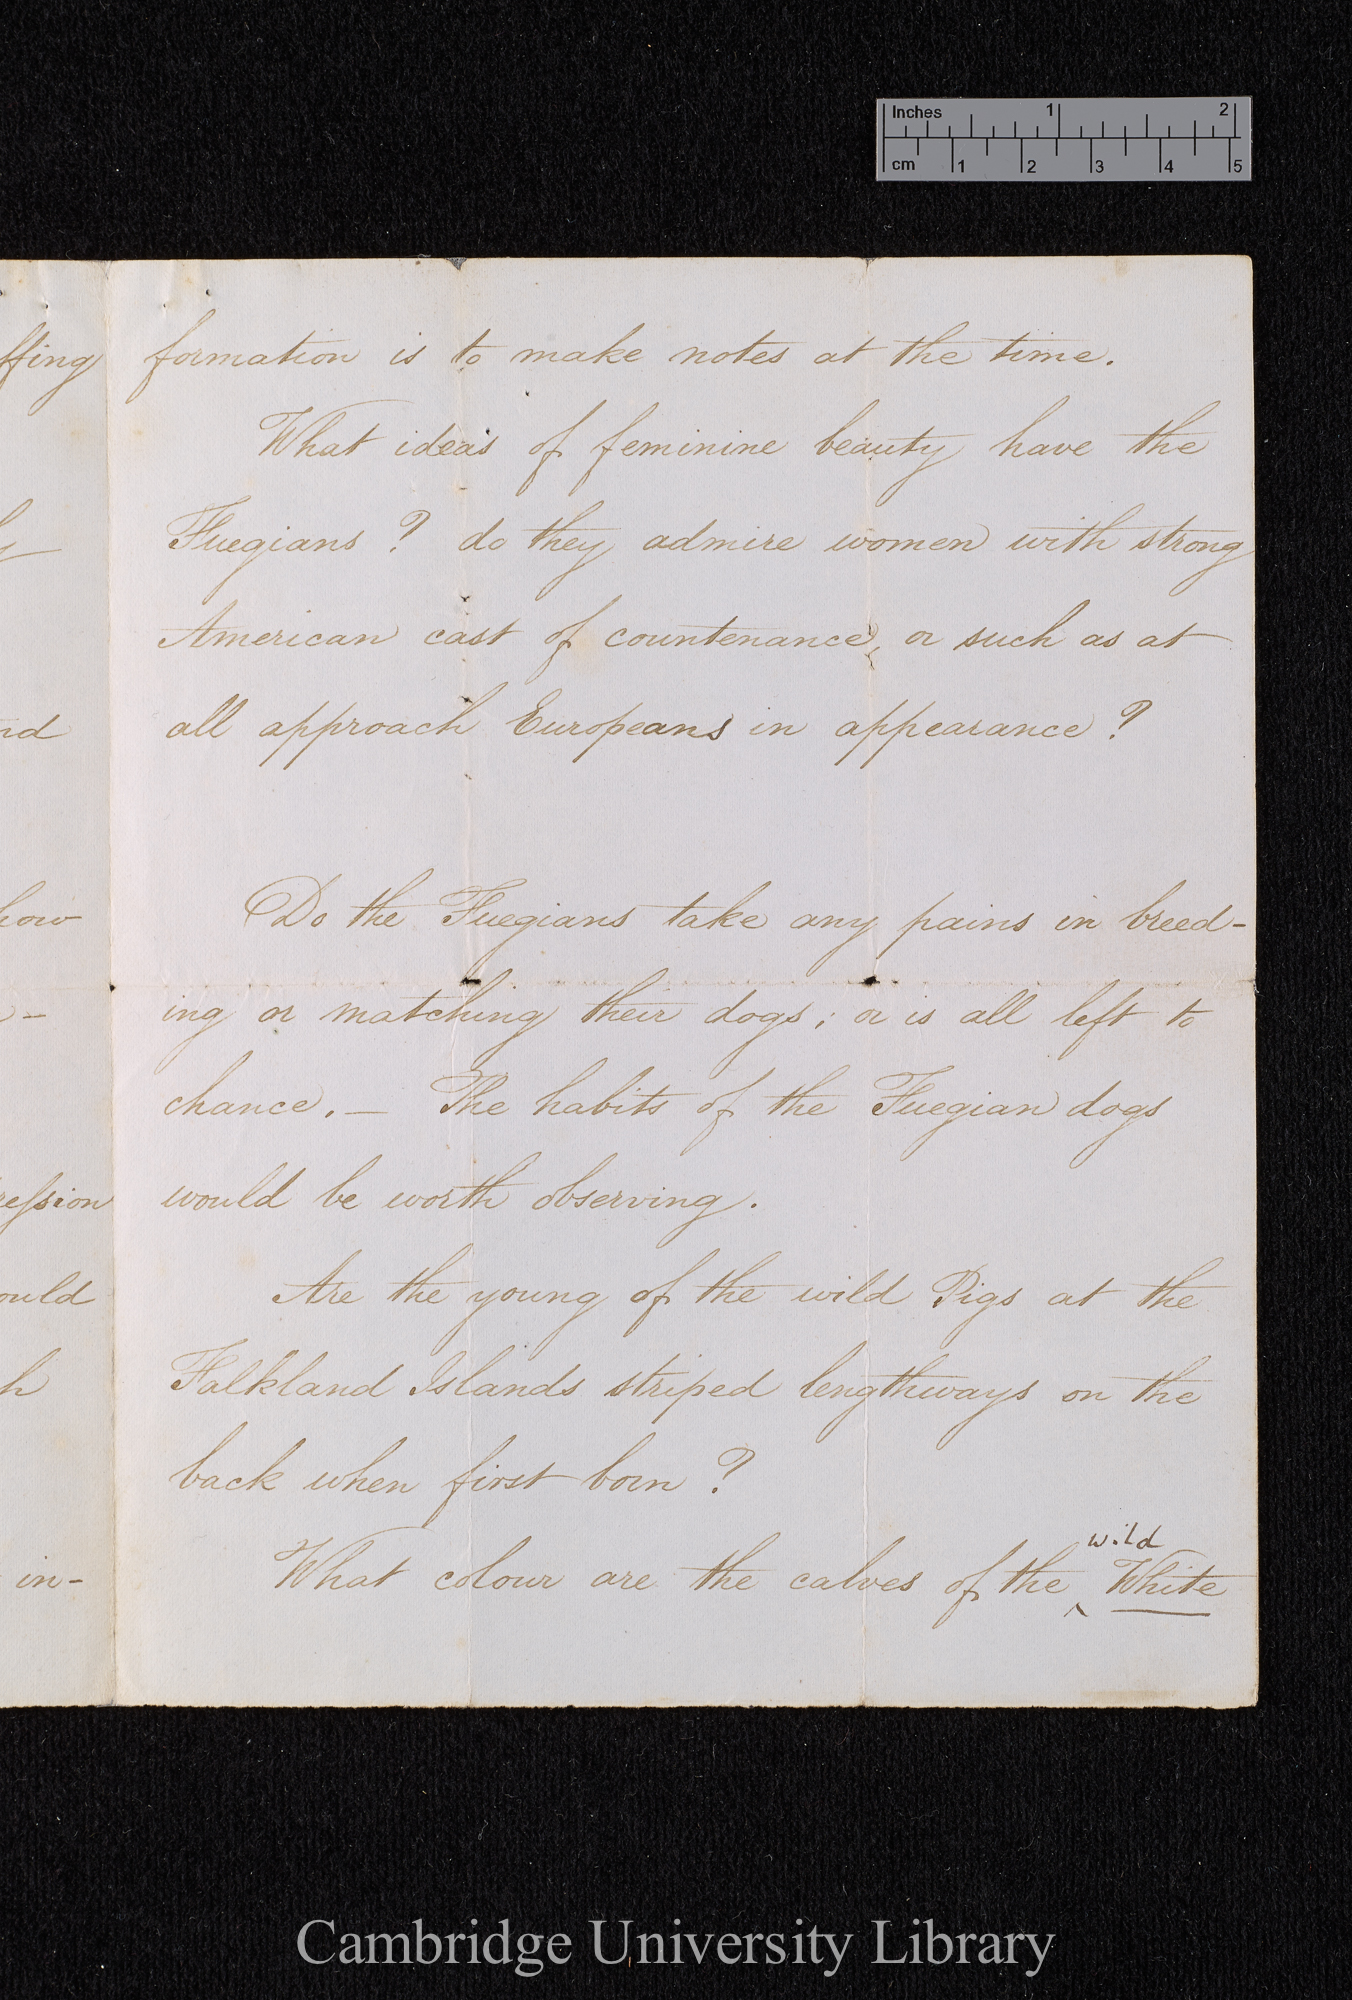 Inches 1 2
cm 1 2 3 4 5
ffing
nd
how
ression
ould
h
in-
formation is to make notes at the time.
What ideas of feminine beauty have the
Fuegians? do they admire women with strong
American cast of countenance, or such as at
all approach Europeans in appearance?
Do the Fuegians take any pains in breed-
ing or matching their dogs; or is all left to
chance. — The habits of the Fuegian dogs
would be worth observing.
Are the young of the wild Pigs at the
Falkland Islands striped lengthways on the
back when first born?
wild
What colour are the calves of the ‸ White
Cambridge University Library